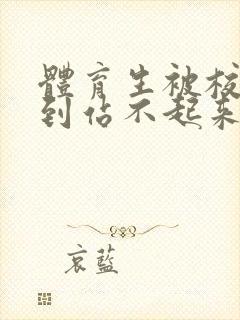 體育生被
到站不起来
哀藍